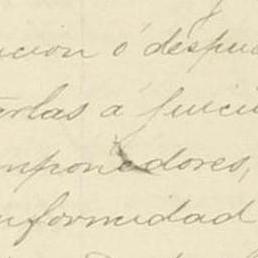 ucion ó despu
erlas a juici
mponedores,
nformidad